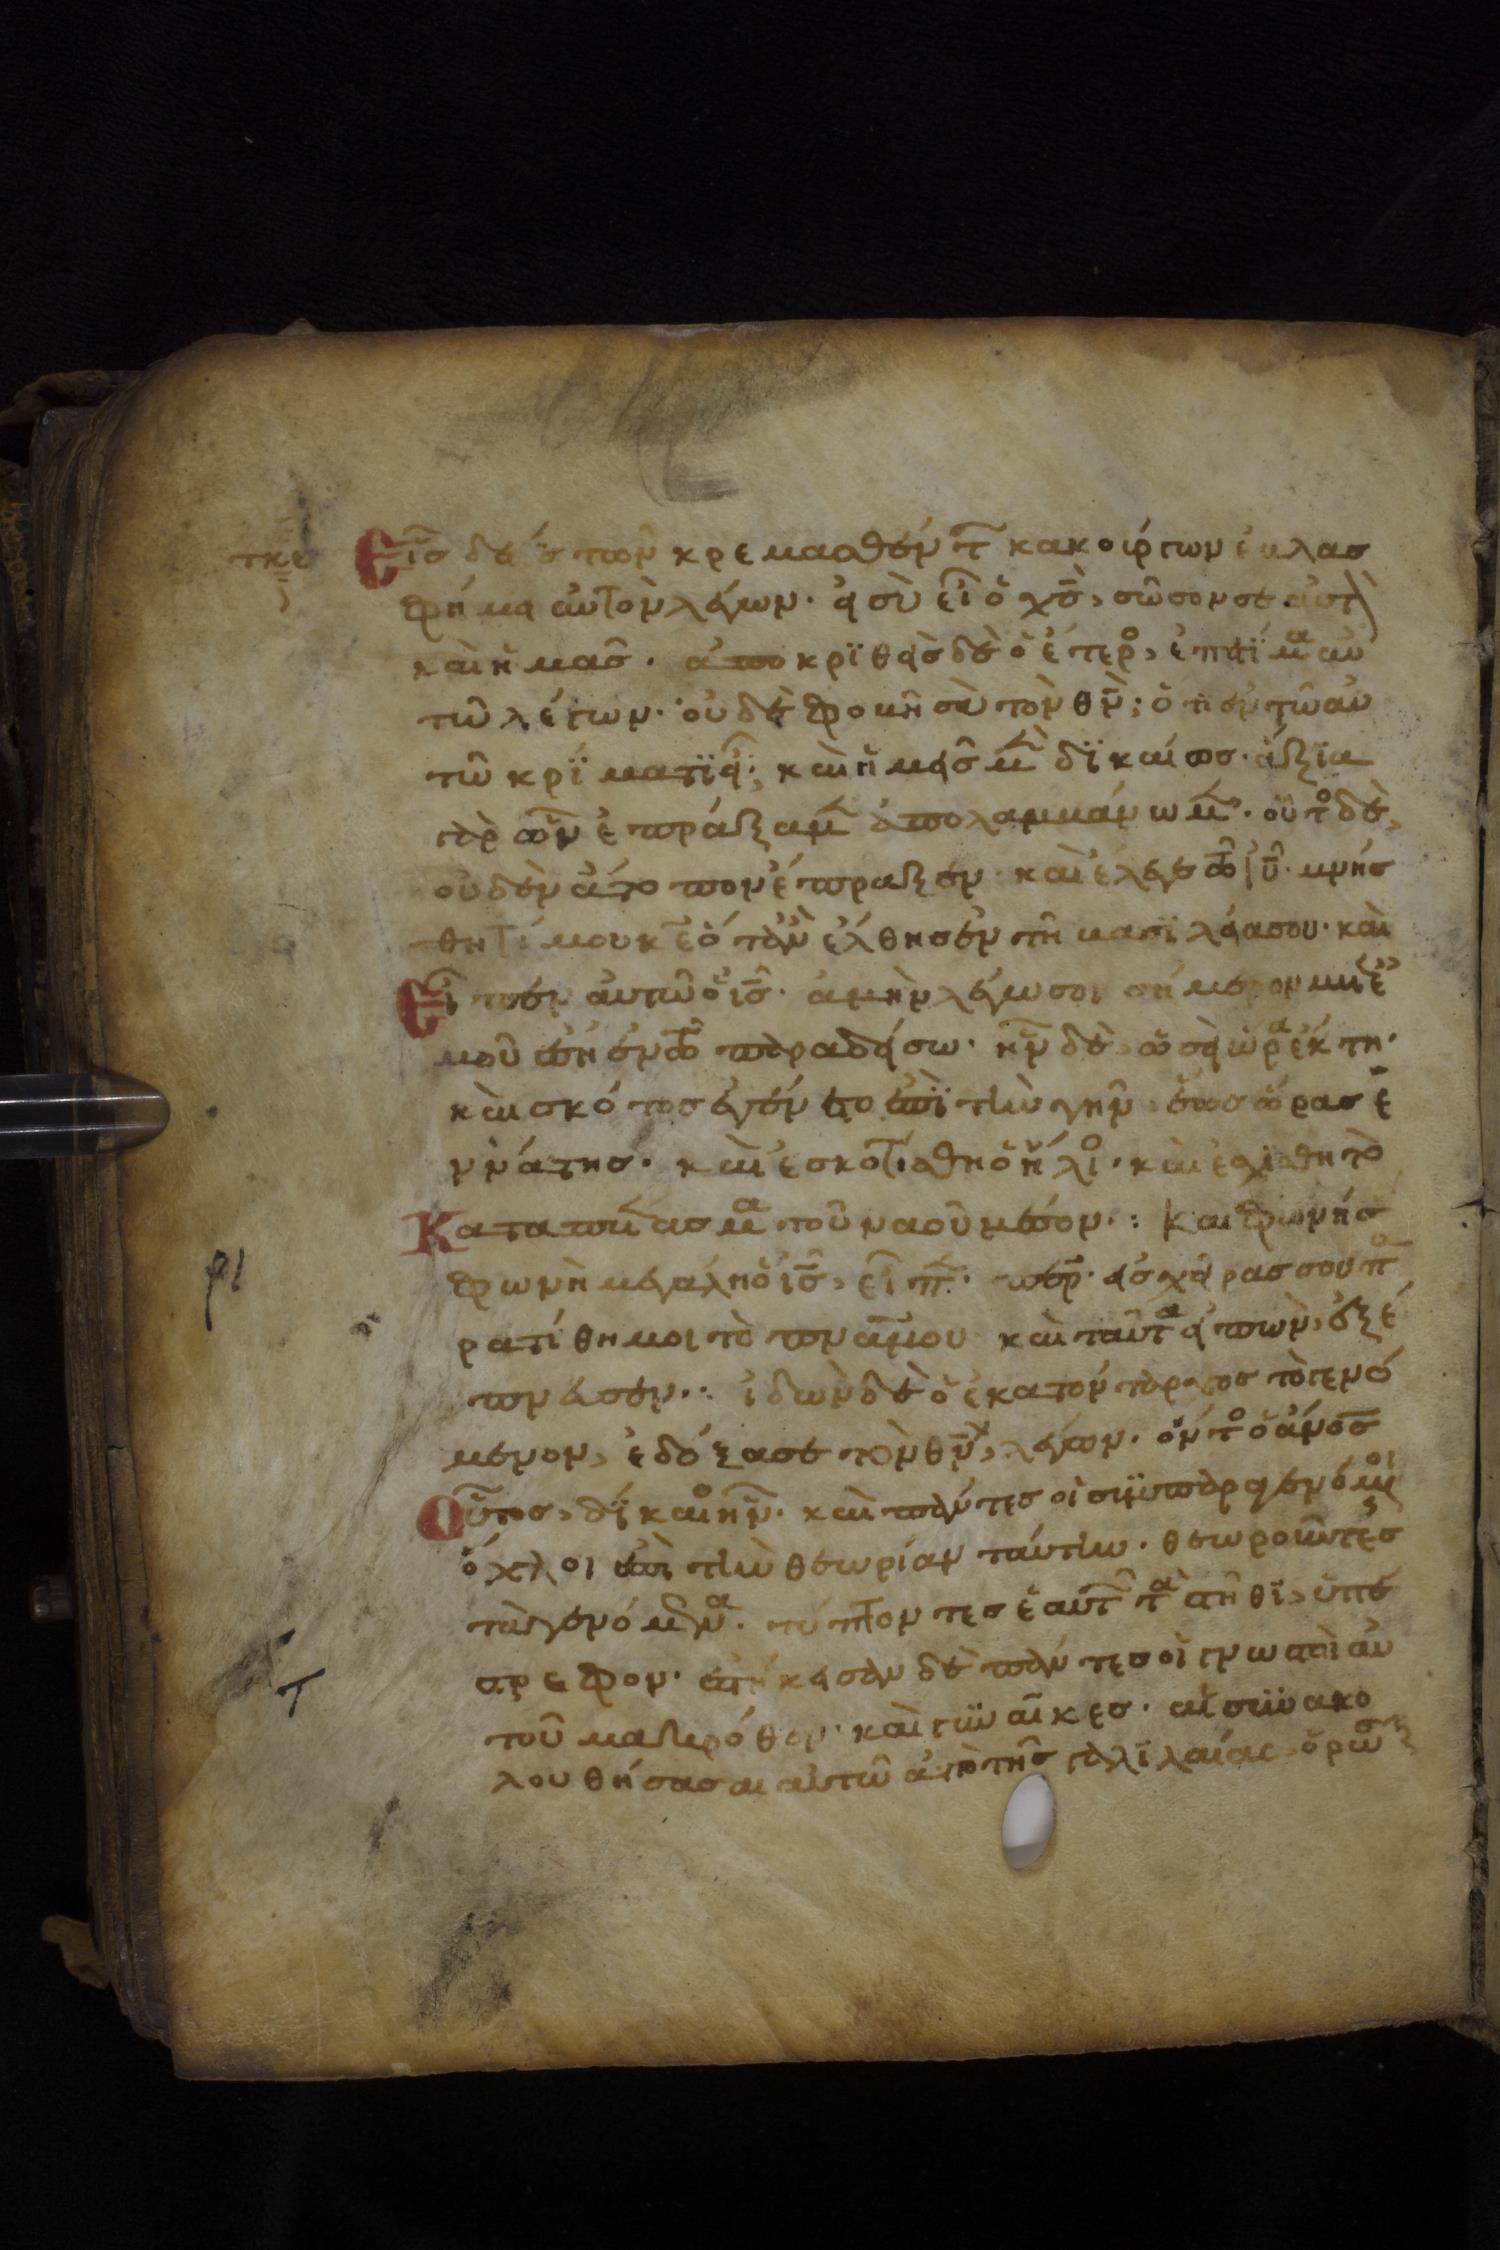 τκε Εἷς δὲ ἐκ τῶν κρεμασθέντ κακούργων ἐβλασ
φήμει αὐτὸν λέγων· εἰ σὺ εἶ ὁ χς̄, σῶσον σεαυτ
καὶ ἡμᾶς· ἀποκρϊθεὶς δὲ ὁ ἕτερο, ἐπετίμα αὐ
τῶ λέγων· οὐδὲ φοβῆ σὺ τὸν θν̄; ὅτι ἐν τῶ αὐ
τῶ κρίματϊ εἶ; καὶ ἡμεῖς μ δϊκαίως· ἄξϊα
γὰρ ὧν ἐπράξαμ ἀπολαμβάνωμ· οὗτο δὲ,
οὐδὲν ἄτοπον ἔπραξεν· καὶ ἔλεγε τῶ ιῦ· μνήσ
θητί μου κε̄ ὅταν ἔλθης ἐν τῆ βασϊλεία σου· καὶ
Εἶπεν αὐτῶ ὁ ις̄· ἀμὴν λέγω σοι σήμερον μετ ἐ
μοῦ ἔση ἐν τῶ παραδείσω· ἦν δὲ ὡσεὶ ὥρα ἕκτη·
καὶ σκότος ἐγένετο ἐπῒ τὴν γῆν ἕως ὥρας ἐ
ννάτης· καὶ ἐσκοτίσθη ὁ ἥλιο· καὶ ἐσχίσθη τὸ
Καταπέτασμα τοῦ ναοῦ μέσον·: καὶ φωνήσ
φωνῆ μεγάλη ὁ ις̄, εἶπ· περ· εἰς χεῖρας σου π
ρατίθημοι τὸ πνᾱ μου καὶ ταῦτα εἰπὼν, ἐξέ
πνευσεν·: ἰδὼν δὲ ὁ ἑκατόνταρχος τὸ γενό
μενον, ἐδόξασε τὸν θν̄, λέγων· ὄντο ὁ ἄνος̄
Οὗτος, δίκαιο ἦν· καὶ πάντες οἱ συμπαραγενόμ
ὄχλοι ἐπὶ τὴν θεωρίαν ταύτην· θεωροῦντες
τὰ γενόμενα· τύπτοντες ἑαυτ τὰ στήθϊ, ὑπέ
στρεφον· εἱστήκεισαν δὲ πάντες οἱ γνωστοὶ αὐ
τοῦ μακρόθεν· καὶ γυναῖκες· αἱ συνακο
λουθήσασαι αὐτῶ ἀπὸ τῆς γαλϊλαίας ὁρῶσ